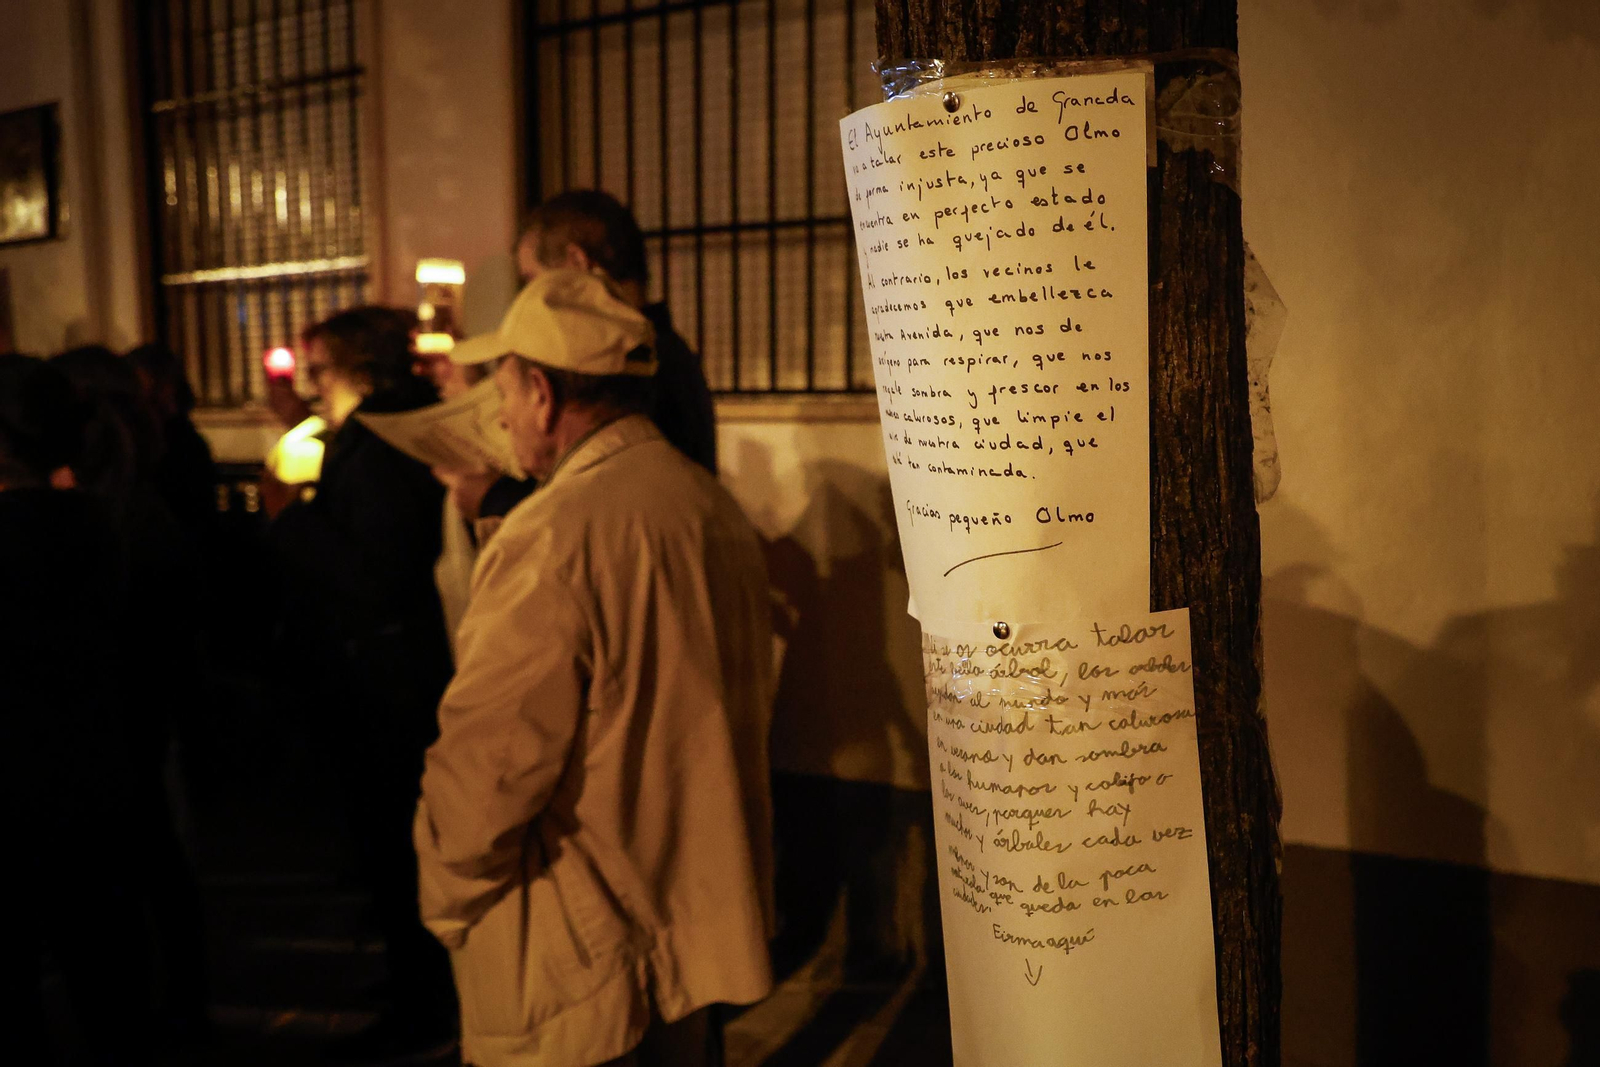 El Ayuntamiento de Granada
va a talar este precioso Olmo
de forma injusta, ya que se
encuentra en perfecto estado
y nadie se ha quejado de él.
Al contrario, los vecinos le
agradecemos que embellezca
nuestra Avenida, que nos de
oxígeno para respirar, que nos
regale sombra y frescor en los
calurosos, que limpie el
de nuestra ciudad, que
está tan contaminada.
Gracias pequeño Olmo
os ocurra talar
este bello árbol, los arboles
ayudan al mundo y más
en una ciudad tan calurosa
en verano y dan sombra
a los humanos y cobijo a
las aves, porquer hay
muchos y árboles cada vez
menos y son de la poca
naturaleza que queda en las
ciudades.
Firma aquí